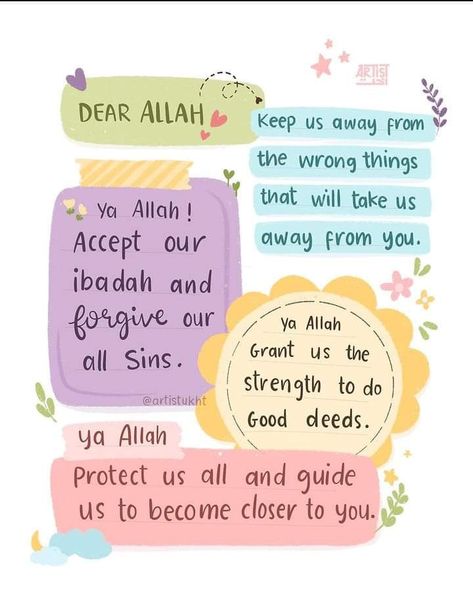 ARTIST
DEAR ALLAH
Keep us away from
the wrong things
that will take us
away from you.
Ya Allah!
Accept our
ibadah and
forgive our
all Sins.
@artistukht
Ya Allah
Grant us the
strength to do
Good deeds.
Ya Allah
Protect us all and guide
us to become closer to you.